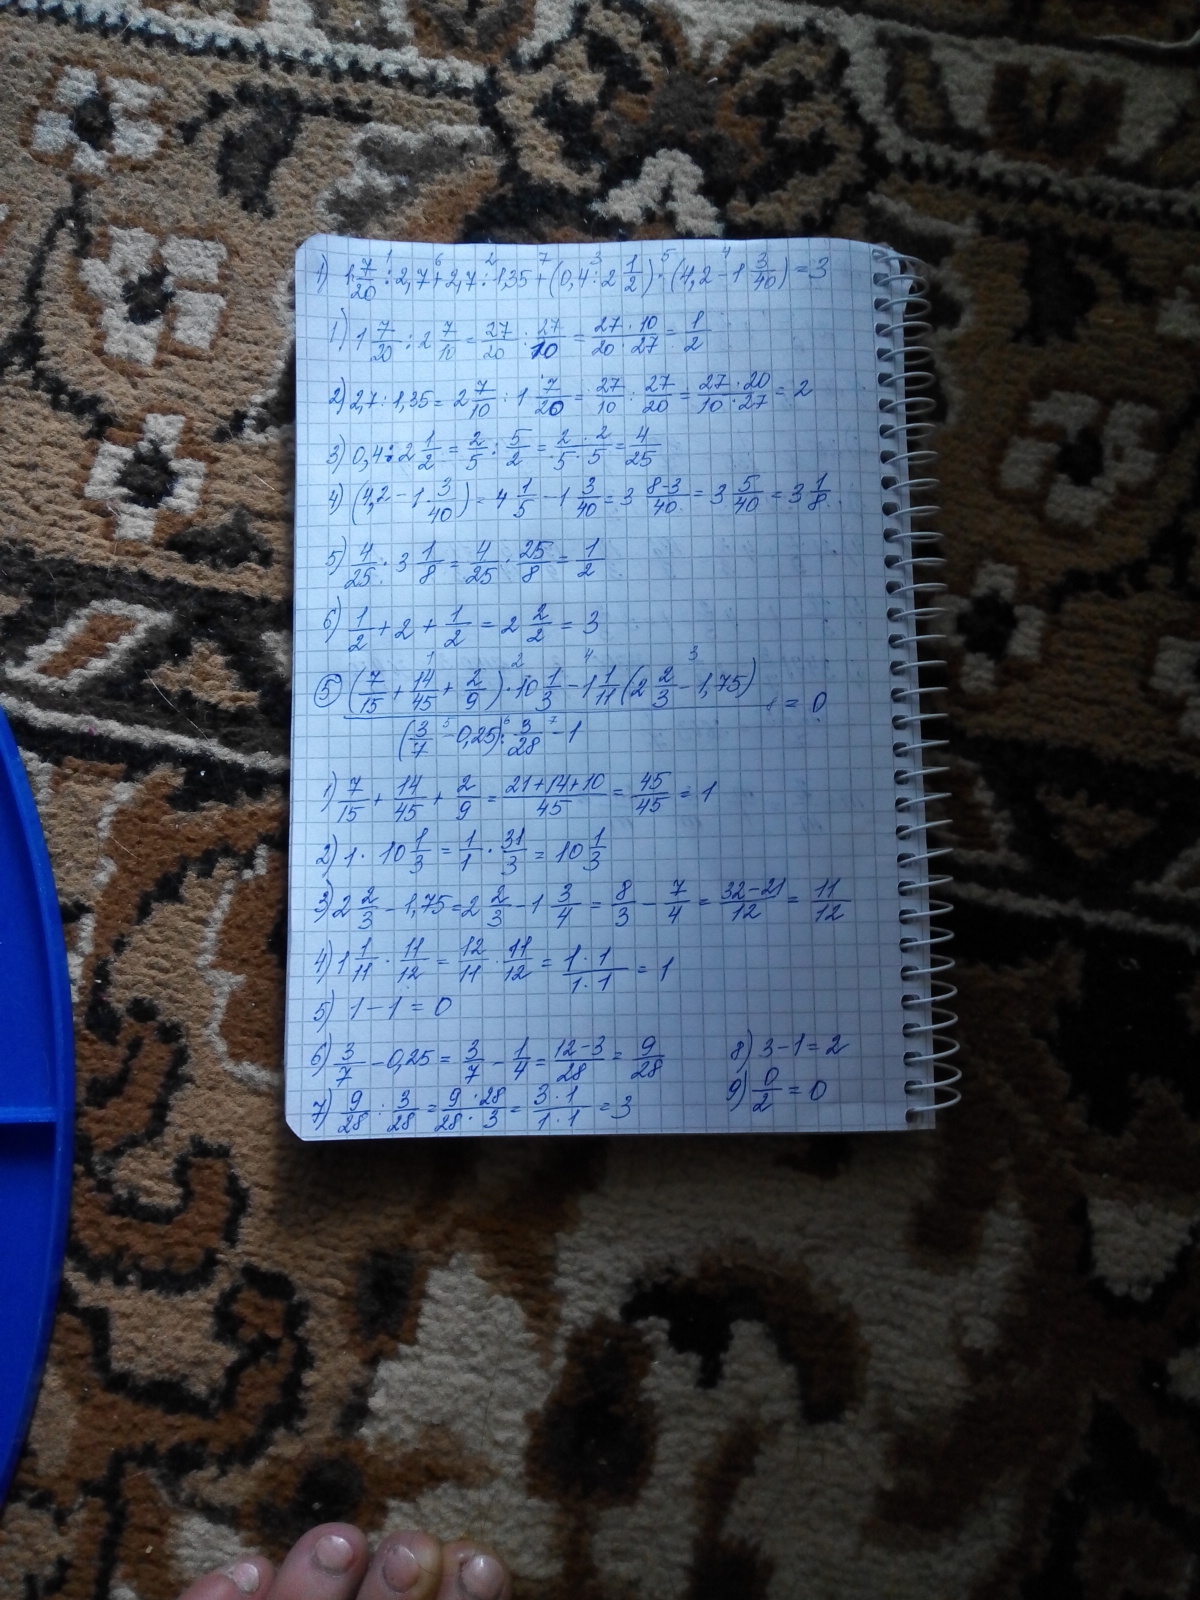 1) 1 7/20 : 2,7 + 2,7 : 1,35 + (0,4 : 2 1/2) · (4,2 - 1 3/40) = 3
1) 1 7/20 : 2 7/10 = 27/20 : 27/10 = 27 · 10/20 · 27 = 1/2
2) 2,7 : 1,35 = 2 7/10 : 1 7/20 = 27/10 : 27/20 = 27 · 20/10 · 27 = 2
3) 0,4 : 2 1/2 = 2/5 : 5/2 = 2 · 2/5 · 5 = 4/25
4) (4,2 - 1 3/40) = 4 1/5 - 1 3/40 = 3 8-3/40 = 3 5/40 = 3 1/8
5) 4/25 · 3 1/8 = 4/25 · 25/8 = 1/2
6) 1/2 + 2 + 1/2 = 2 2/2 = 3
5 (7/15 + 14/45 + 2/9) · 10 1/3 - 1 1/11 (2 2/3 - 1,75) = 0
(3/7 - 0,25) : 3/28 - 1
1) 7/15 + 14/45 + 2/9 = 21+14+10/45 = 45/45 = 1
2) 1 · 10 1/3 = 1/1 · 31/3 = 10 1/3
3) 2 2/3 - 1,75 = 2 2/3 - 1 3/4 = 8/3 - 7/4 = 32-21/12 = 11/12
4) 1 1/11 · 11/12 = 12/11 · 11/12 = 1 · 1/1 · 1 = 1
5) 1 - 1 = 0
6) 3/7 - 0,25 = 3/7 - 1/4 = 12-3/28 = 9/28
7) 9/28 : 3/28 = 9 · 28/28 · 3 = 3 · 1/1 · 1 = 3
8) 3 - 1 = 2
9) 0/2 = 0